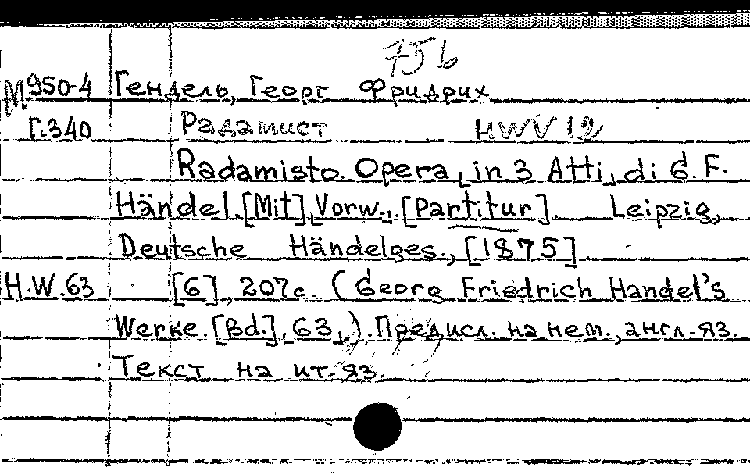 75b
М950-4 Гендель, Георг Фридрих
Г.340 Радамист HWV 12
Radamisto. Opera in 3 Atti di G. F.
Händel. [Mit] Vorw. [Partitur] Leipzig,
Deutsche Händelges., [1875]
H.W.63 [6], 207с. (Georg Friedrich Handel's
Werke. [Bd.] 63.) Предисл. на нем., англ. яз.
Текст на ит. яз.